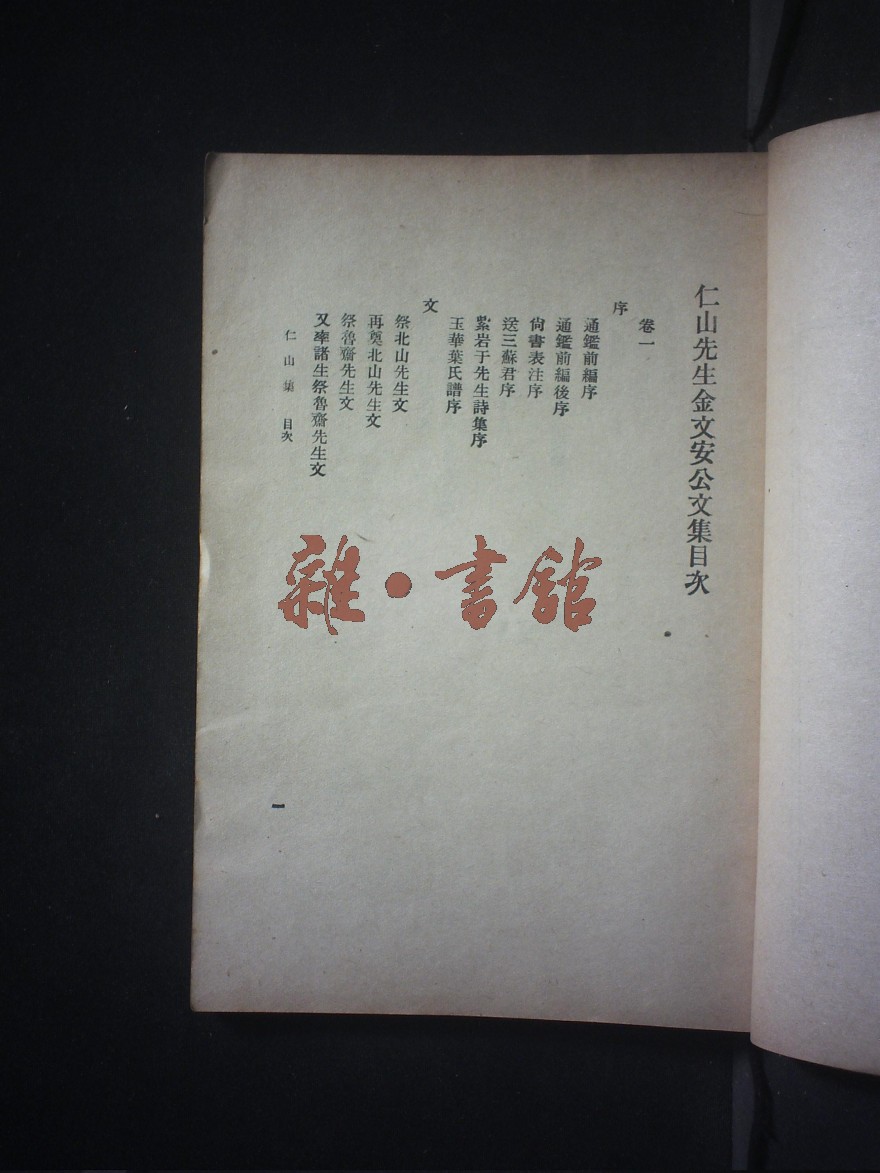 仁山先生金文安公文集目次
卷一
序
通鑑前編序
通鑑前編後序
尙書表注序
送三蘇君序
紫岩于先生詩集序
玉華葉氏譜序
文
祭北山先生文
再奠北山先生文
祭魯齋先生文
又率諸生祭魯齋先生文
仁山集 目次
一
雜·書館